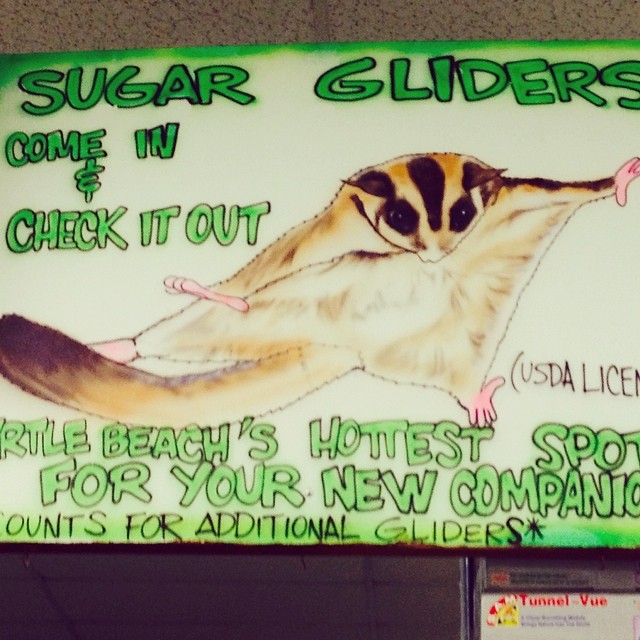 SUGAR GLIDERS
COME IN
&
CHECK IT OUT
(USDA LICEN
RTLE BEACH'S HOTTEST SPOT
FOR YOUR NEW COMPANIO
OUNTS FOR ADDITIONAL GLIDERS*
Tunnel-Vue